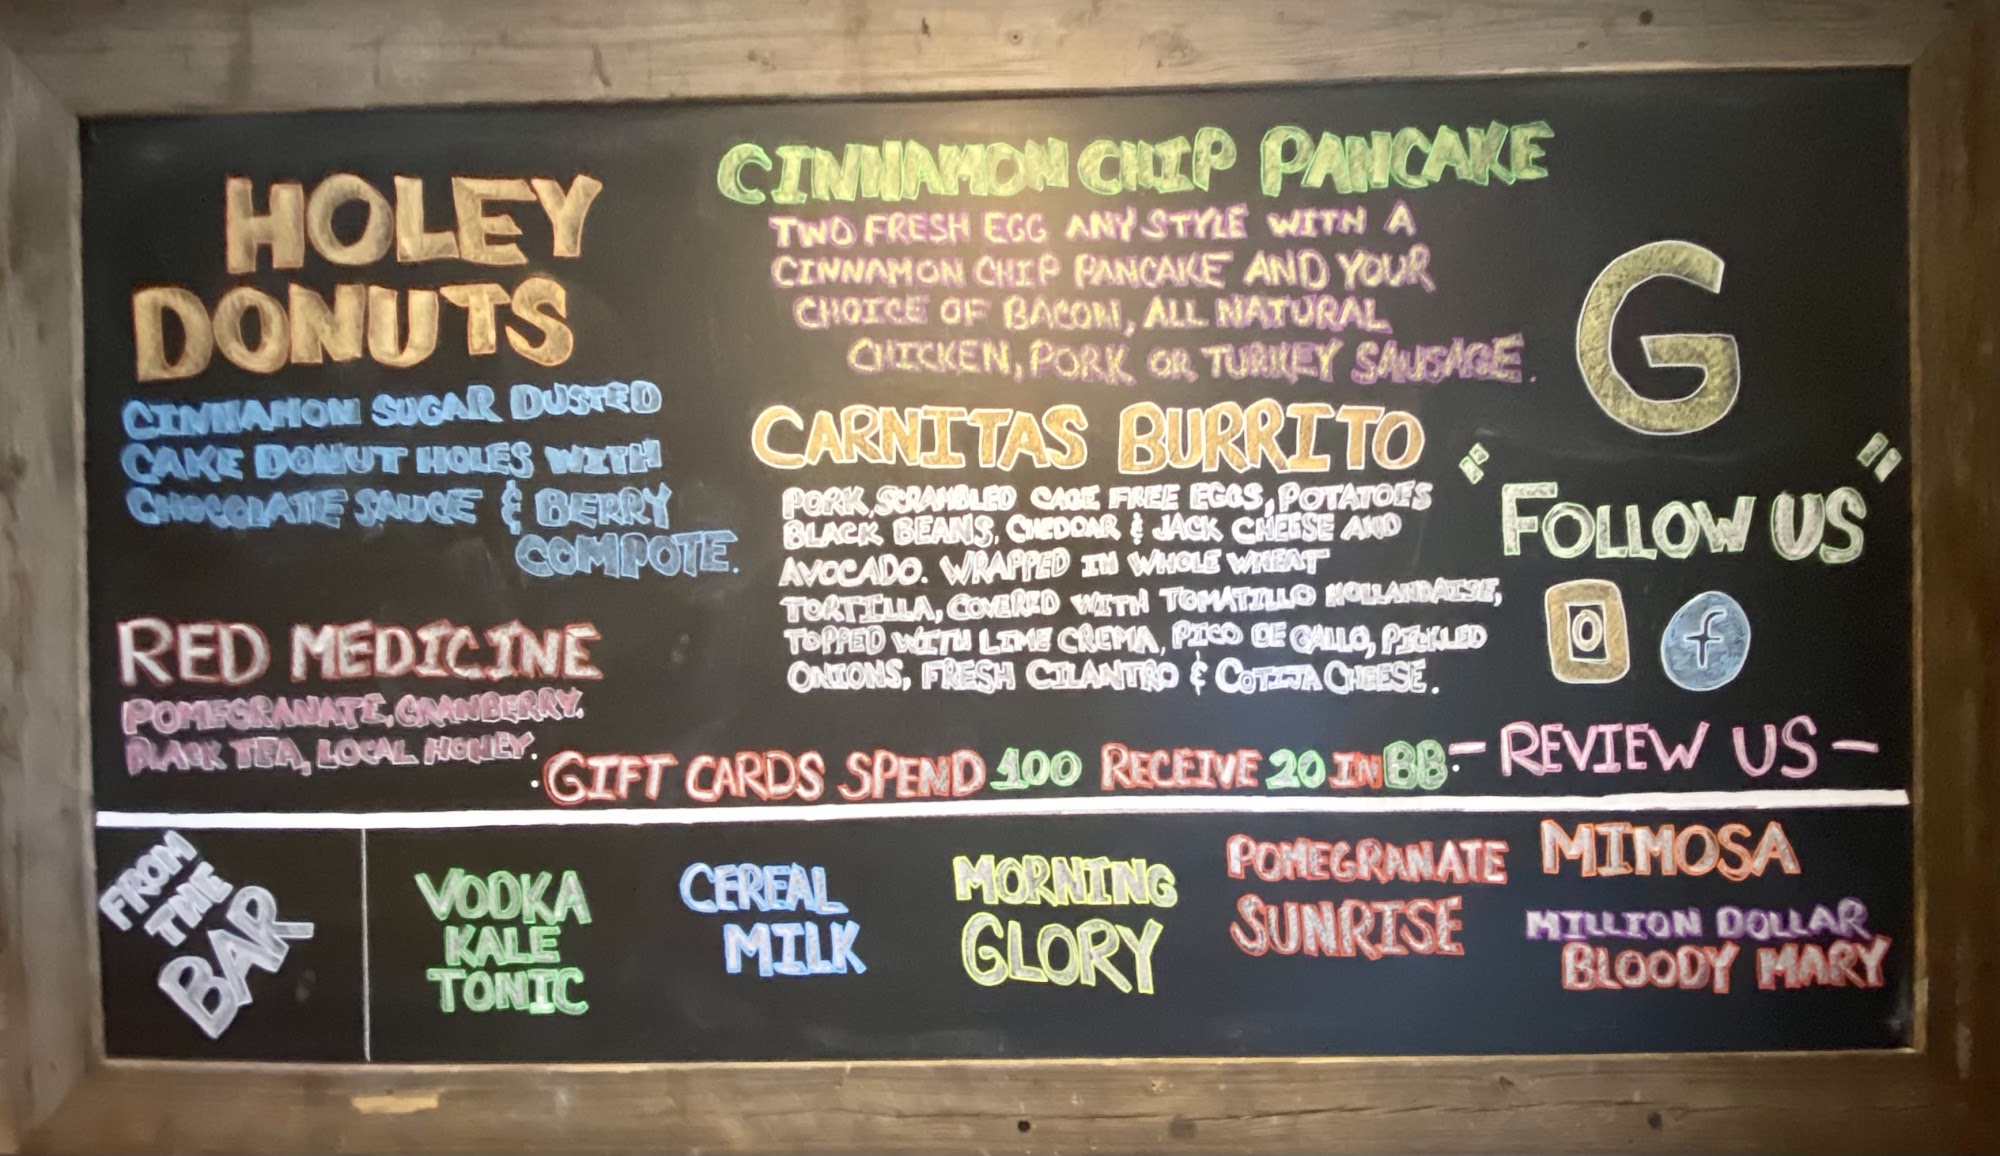 HOLEY
DONUTS
CINNAMON SUGAR DUSTED
CAKE DONUT HOLES WITH
CHOCOLATE SAUCE & BERRY
COMPOTE.
RED MEDICINE
POMEGRANATE, CRANBERRY,
BLACK TEA, LOCAL HONEY.
CINNAMON CHIP PANCAKE
TWO FRESH EGG ANY STYLE WITH A
CINNAMON CHIP PANCAKE AND YOUR
CHOICE OF BACON, ALL NATURAL
CHICKEN, PORK OR TURKEY SAUSAGE.
CARNITAS BURRITO
PORK, SCRAMBLED CAGE FREE EGGS, POTATOES
BLACK BEANS, CHEDDAR & JACK CHEESE AND
AVOCADO. WRAPPED IN WHOLE WHEAT
TORTILLA, COVERED WITH TOMATILLO HOLLANDAISE,
TOPPED WITH LIME CREMA, PICO DE GALLO, PICKLED
ONIONS, FRESH CILANTRO & COTIJA CHEESE.
G
"FOLLOW US"
f
- REVIEW US -
: GIFT CARDS SPEND 100 RECEIVE 20 IN BB:
FROM
THE
BAR
VODKA
KALE
TONIC
CEREAL
MILK
MORNING
GLORY
POMEGRANATE
SUNRISE
MIMOSA
MILLION DOLLAR
BLOODY MARY